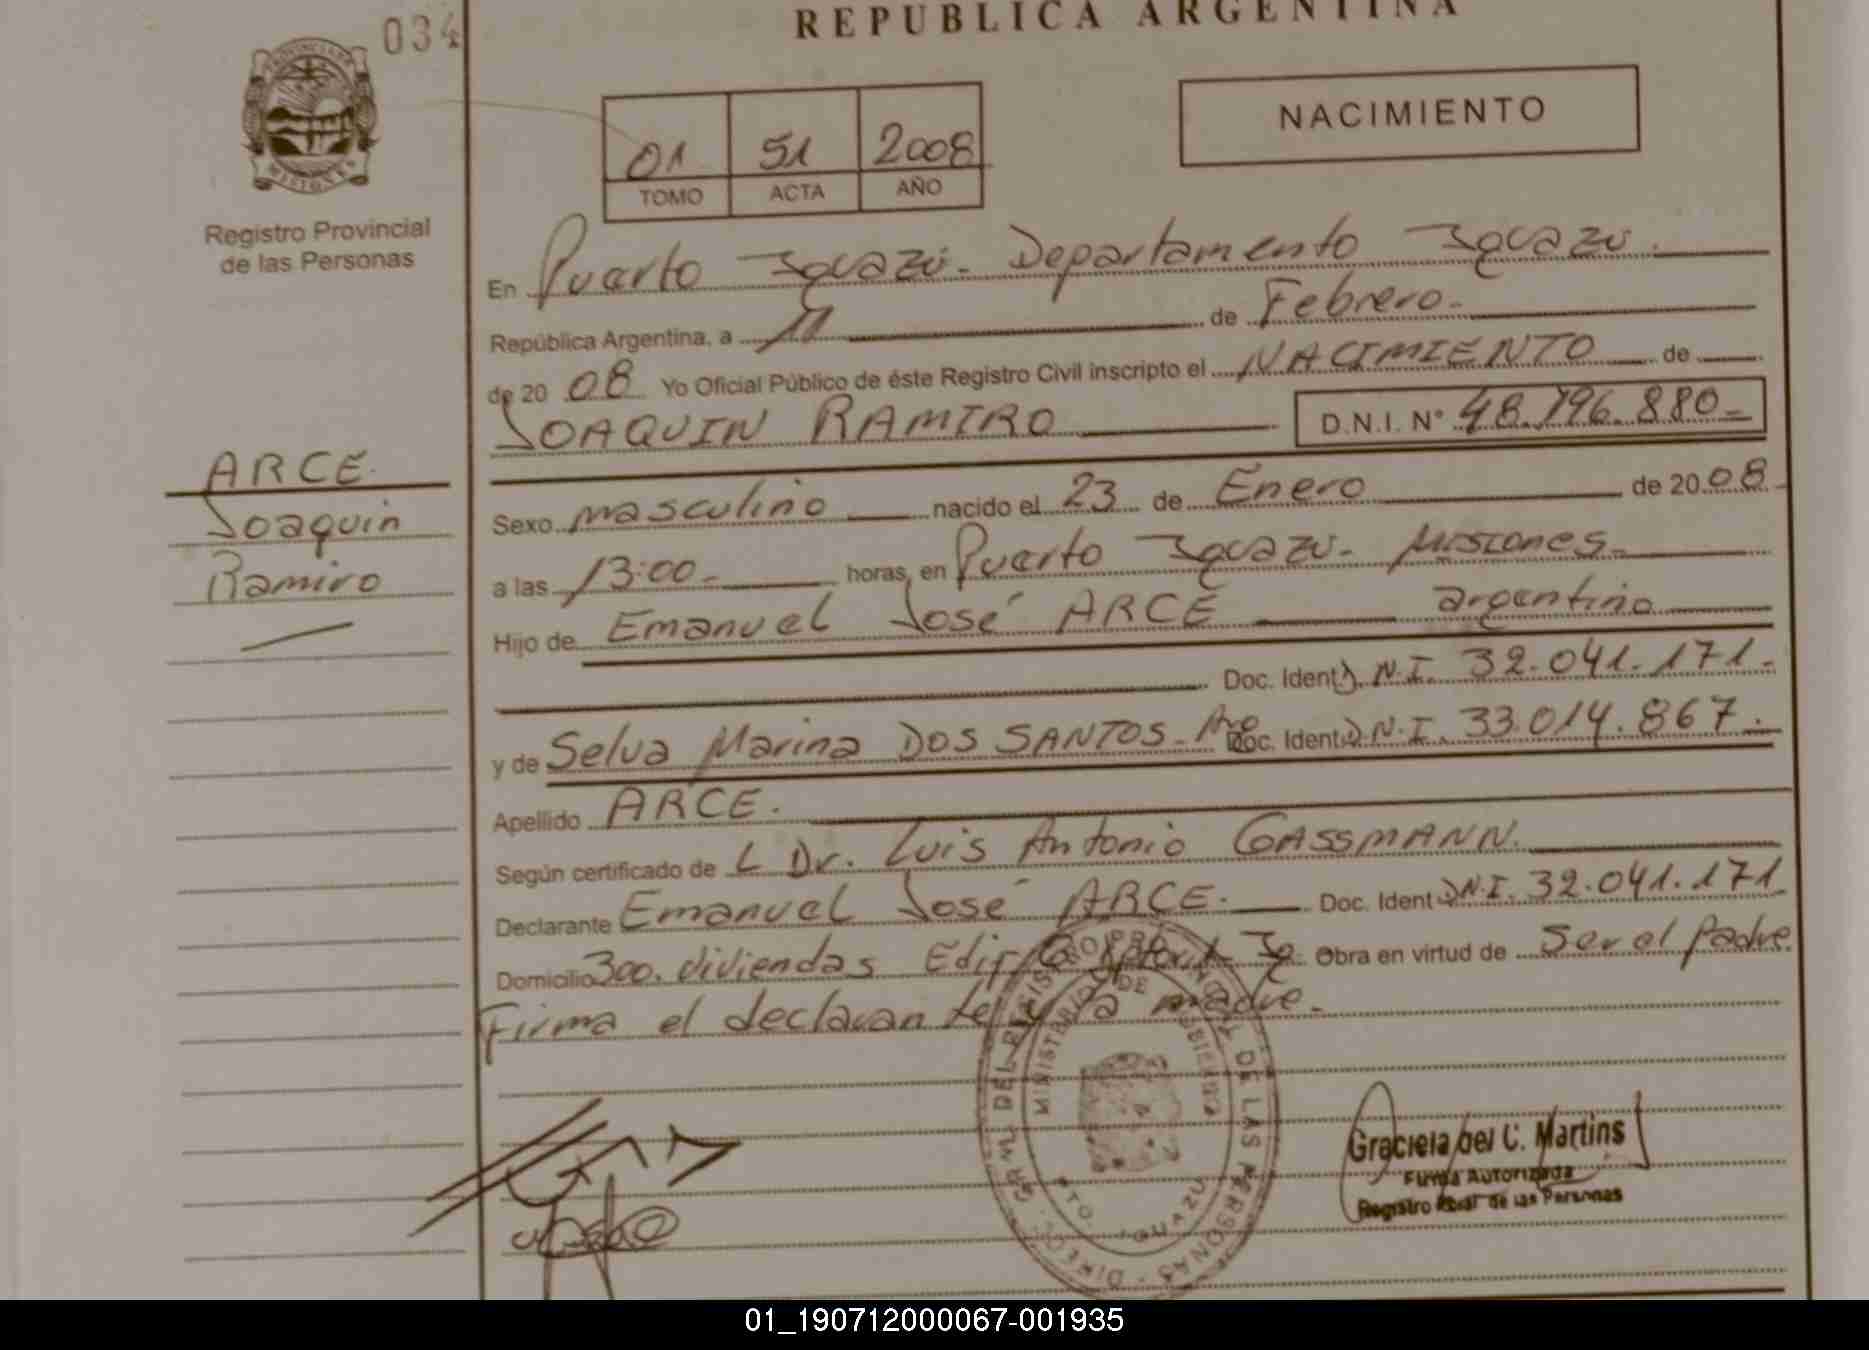 034
REPUBLICA ARGENTINA
PROVINCIA DE
MISIONES
Registro Provincial
de las Personas
01 51 2008
TOMO ACTA AÑO
NACIMIENTO
En Puerto Iguazú. Departamento Iguazú.
República Argentina, a 11 de Febrero.
de 20 08 Yo Oficial Público de éste Registro Civil inscripto el NACIMIENTO de
JOAQUIN RAMIRO D.N.I. N° 48.796.880
ARCE
Joaquin
Ramiro
Sexo masculino nacido el 23 de Enero de 20 08
a las 13:00 horas, en Puerto Iguazú. Misiones
Hijo de Emanuel José ARCE argentino
Doc. Ident D.N.I. 32.041.171.
y de Selva Marina DOS SANTOS. Doc. Ident D.N.I. 33.014.867.
Apellido ARCE.
Según certificado de L Dr. Luis Antonio GASSMANN.
Declarante Emanuel José ARCE. Doc. Ident D.N.I. 32.041.171
Domicilio 300. viviendas Obra en virtud de Ser el Padre.
Firma el declarante y la madre.
DEL REGISTRO PROVINCIAL DE LAS PERSONAS
MINISTERIO DE
PTO. IGUAZU
Graciela del C. Martins
Firma Autorizada
Registro de las Personas
01_190712000067-001935